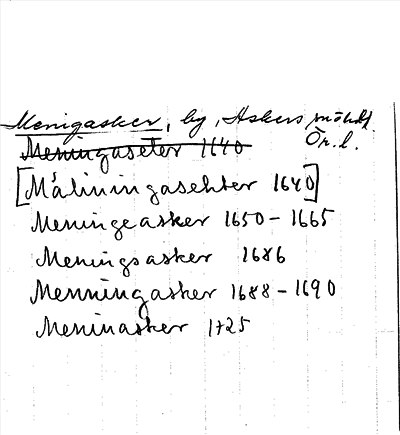 Menigasker, by, Askers
Ör. l.
Meningaseter 1640
[Mäliningasehter 1640]
Meningeasker 1650-1665
Meningsasker 1686
Menningasker 1688-1690
Meninasker 1725